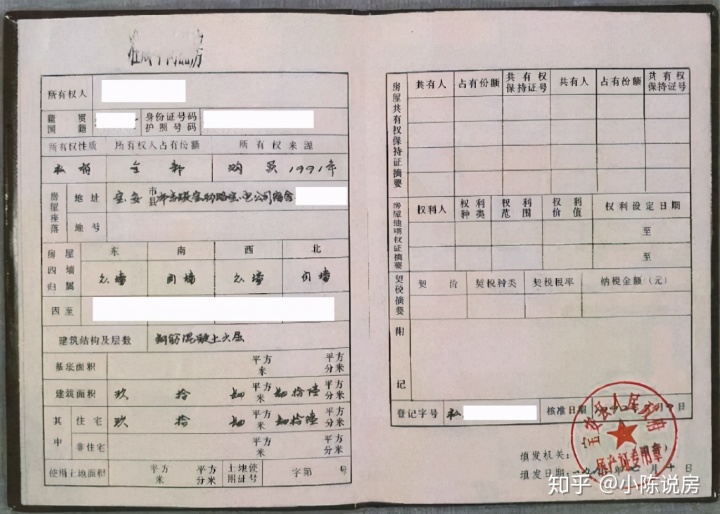 准成本商品房
所有权人
籍贯 国籍 身份证号码 护照号码
所有权性质 所有权人占有份额 所有权来源
私有 全部 购买1991年
房屋座落 地址 宝安 市县
地号
房屋四墙归属 东 南 西 北
公墙 自墙 公墙 自墙
四至
建筑结构及层数 钢筋混凝土六层
基底面积 平方米 平方分米
建筑面积 玖 拾 捌 平方米 捌拾陆 平方分米
其中 住宅 玖 拾 捌 平方米 捌拾陆 平方分米
非住宅 平方米 平方分米
使用土地面积 平方米 平方分米 土地使用证号 字第 号
房屋共有权保持证摘要 共有人 占有份额 共有权保持证号 共有人 占有份额 共有权保持证号
权利人 权利种类 权利范围 权利价值 权利设定日期
至
至
契税摘要 契价 契税种类 契税税率 纳税金额(元)
附记
登记字号 私 核准日期
填发机关:
填发日期:
宝安县人民政府
房产证专用章
知乎 @小陈说房